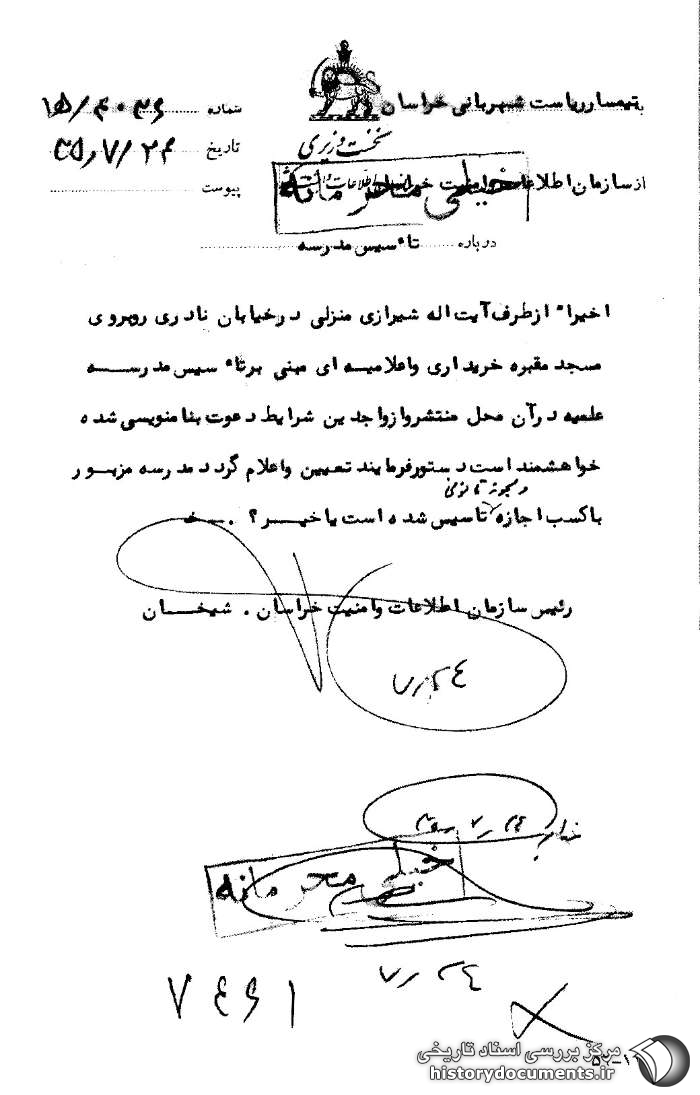 بتیمسار ریاست شهربانی خراسان
شماره ۱۵/۴۰۳۶
نخست وزیری
تاریخ ۳۵/۷/۲۴
از سازمان اطلاعات و امنیت
خیلی محرمانه
پیوست
درباره تاءسیس مدرسه
اخیراً از طرف آیت اله شیرازی منزلی در خیابان نادری روبروی
مسجد مقبره خریداری و اعلامیه ای مبنی بر تاءسیس مدرسه
علمیه در آن محل منتشر و از واجدین شرایط دعوت بنامنویسی شده
خواهشمند است دستور فرمایند تعیین و اعلام گردد مدرسه مزبور
با کسب اجازه تاسیس شده است یا خیر؟ . خ
رئیس سازمان اطلاعات و امنیت خراسان . شیخان
۷/۲۴
خیلی محرمانه
۷/۲۴
۷۴۶۱
مرکز بررسی اسناد تاریخی
historydocuments.ir